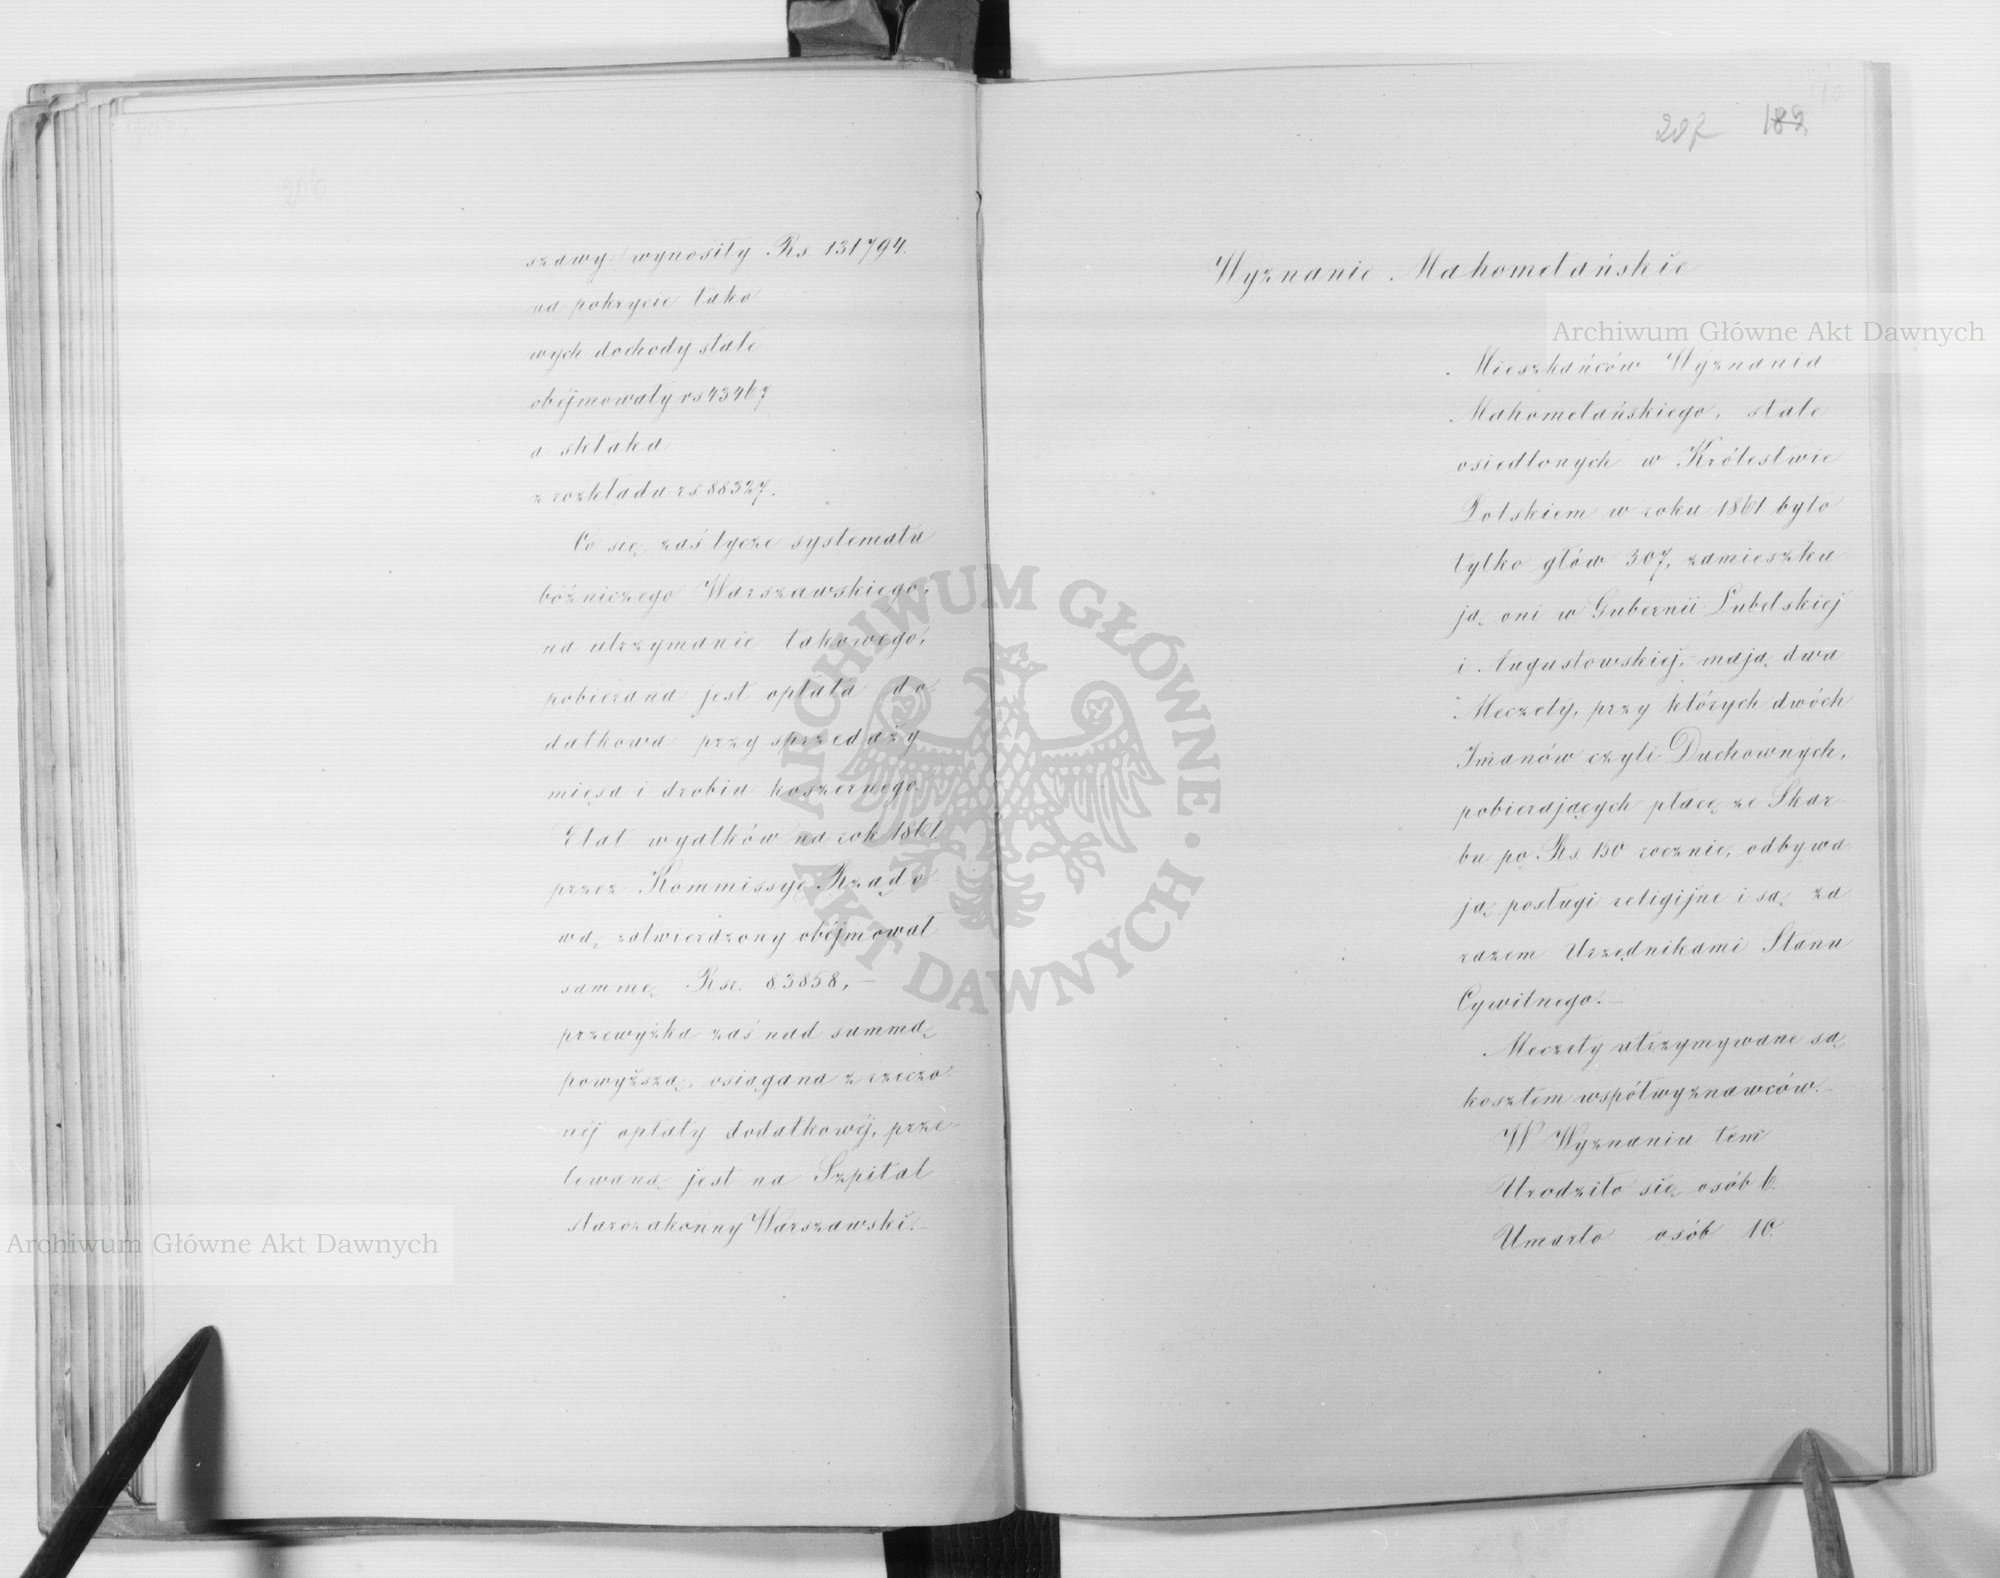 szawy/ wynosiły Rs. 131794.
na pokrycie tako
wych dochody stałe
obéjmowały rs 43467
a składka
z rozkładu rs 88327.
Co się zaś tycze systematu
bóżniczego Warszawskiego,
na utrzymanie takowego,
pobierana jest opłata do-
datkowa przy sprzedaży
mięsa i drobiu koszernego.
Etat wydatków na rok 1861
przez Kommissyę Rządo-
wą zatwierdzony obéjmował
summę Rsr. 83858, –
przewyżka zaś nad summę
powyższą, osiągana z rzeczo-
néj opłaty dodatkowéj, prze-
lewaną jest na Szpital
starozakonny Warszawski. –
207 189.
Wyznanie Mahometańskie
Mieszkańców Wyznania
Mahometańskiego, stale
osiedlonych w Królestwie
Polskiem w roku 1861 było
tylko głów 307, zamieszku-
ją oni w Gubernii Lubelskiej
i Augustowskiej, – mają dwa
Meczety, przy których dwóch
Imanów czyli Duchownych,
pobierających płacę ze Skar-
bu po Rs. 150 rocznie, odbywa-
ją posługi religijne i są za-
razem Urzędnikami Stanu
Cywilnego. –
Meczety utrzymywane są
kosztem współwyznawców. –
W Wyznaniu tem
Urodziło się osób 6.
Umarło osób 10.
Archiwum Główne Akt Dawnych
Archiwum Główne Akt Dawnych
ARCHIWUM GŁÓWNE · AKT DAWNYCH ·